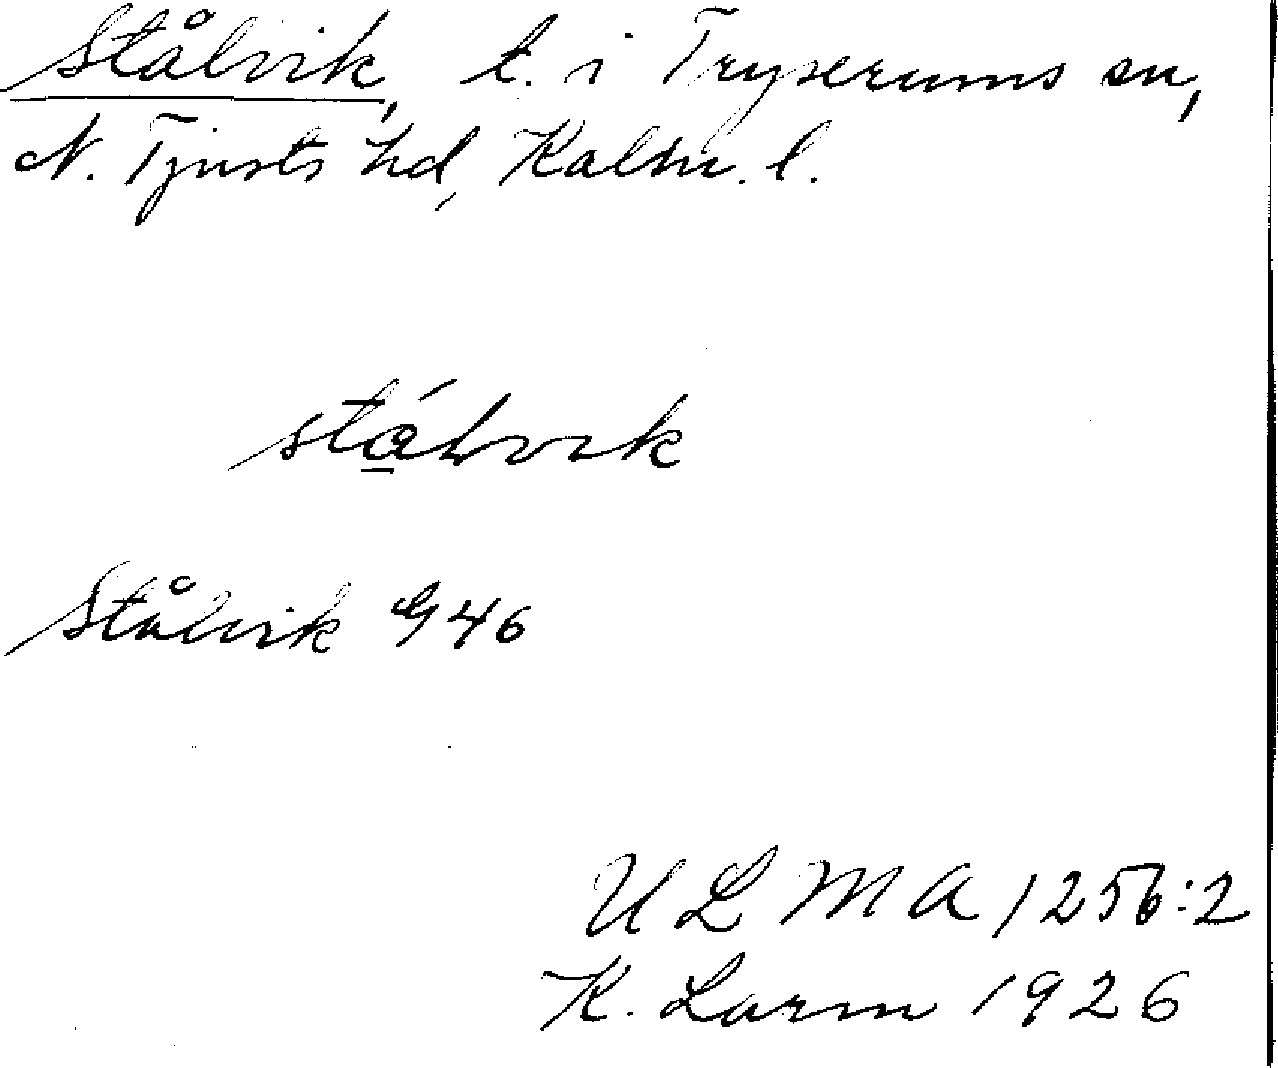 Stålvik, t. i Tryserums sn,
N. Tjusts hd, Kalm. l.
Stålvik G 46
U L M A 1256:2
K. Larm 1926